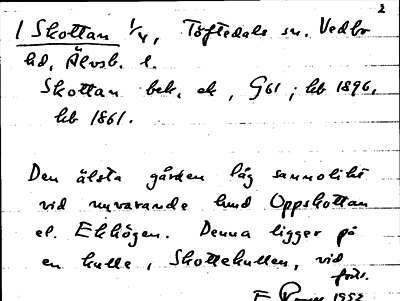 2
1 Skottan 1/4, Töftedals sn. Vedbo
hd, Älvsb. l.
Skottan bek. ek, G61; hb 1896,
hb 1861.
Den älsta gården låg sannolikt
vid nuvarande hmd Oppskottan
el. Ekhögen. Denna ligger på
en kulle, Skottekullen, vid
forts.
1952